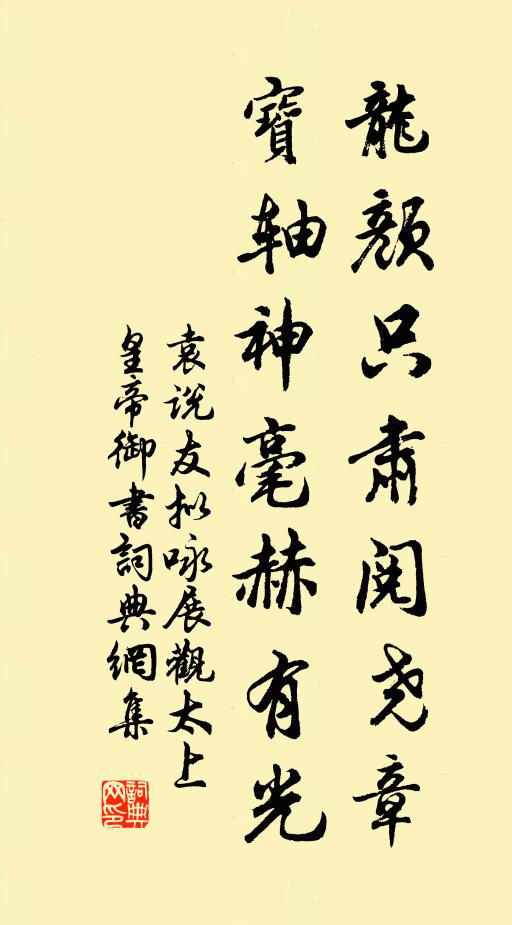 龍顏只肅閱尧章
寶軸神毫赫有光
袁説友拟咏展觀太上
皇帝御書詞典網集
詞典网印